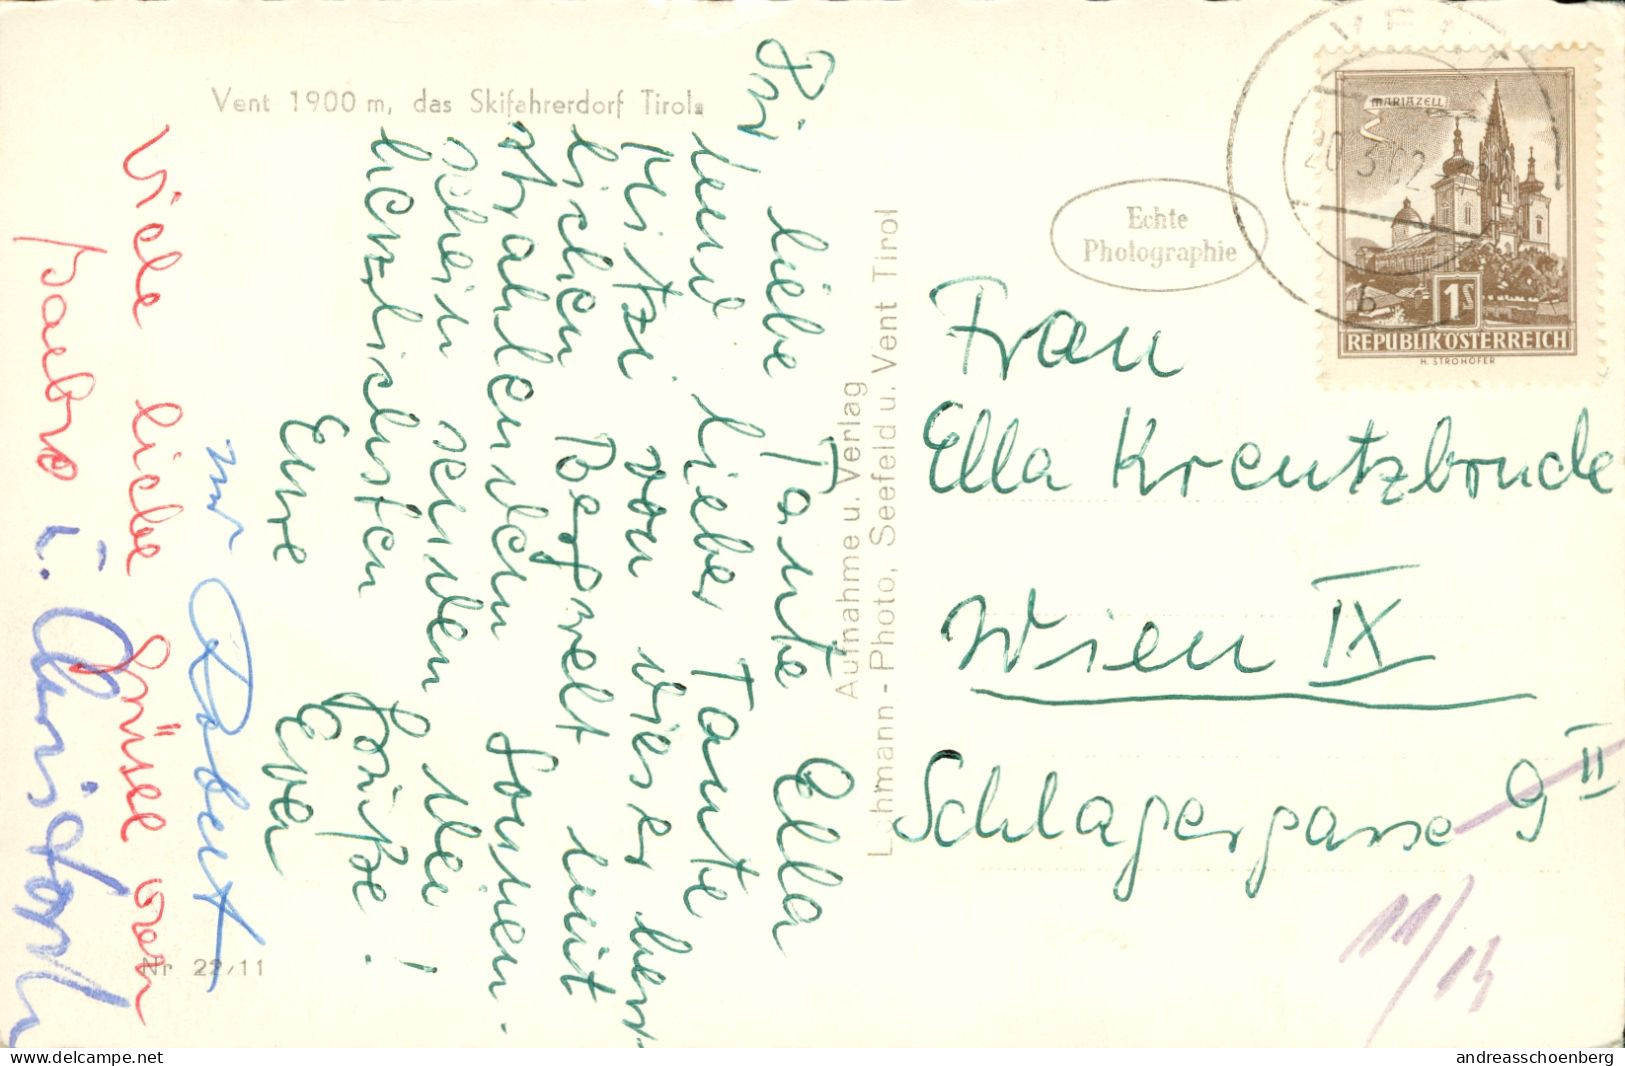 Vent 1900 m, das Skifahrerdorf Tirols
Dir liebe Tante Ella
und lieber Tante
Mitzi von dieser herr-
lichen Bergwelt mit
strahlendem Sonnen-
schein senden wir
herzlichsten Grüße!
Eure Eva
und Robert
Viele liebe Grüße von
u. Christoph
Nr 22/11
Aufnahme u. Verlag
Lohmann-Photo, Seefeld u. Vent Tirol
Echte
Photographie
VENT
20.3.62
b
MARIAZELL
1S
REPUBLIK ÖSTERREICH
H. STROHOFER
Frau
Ella Kreutzbruck
Wien IX
Schlagergasse 9 II
11/14
www.delcampe.net
andreasschoenberg